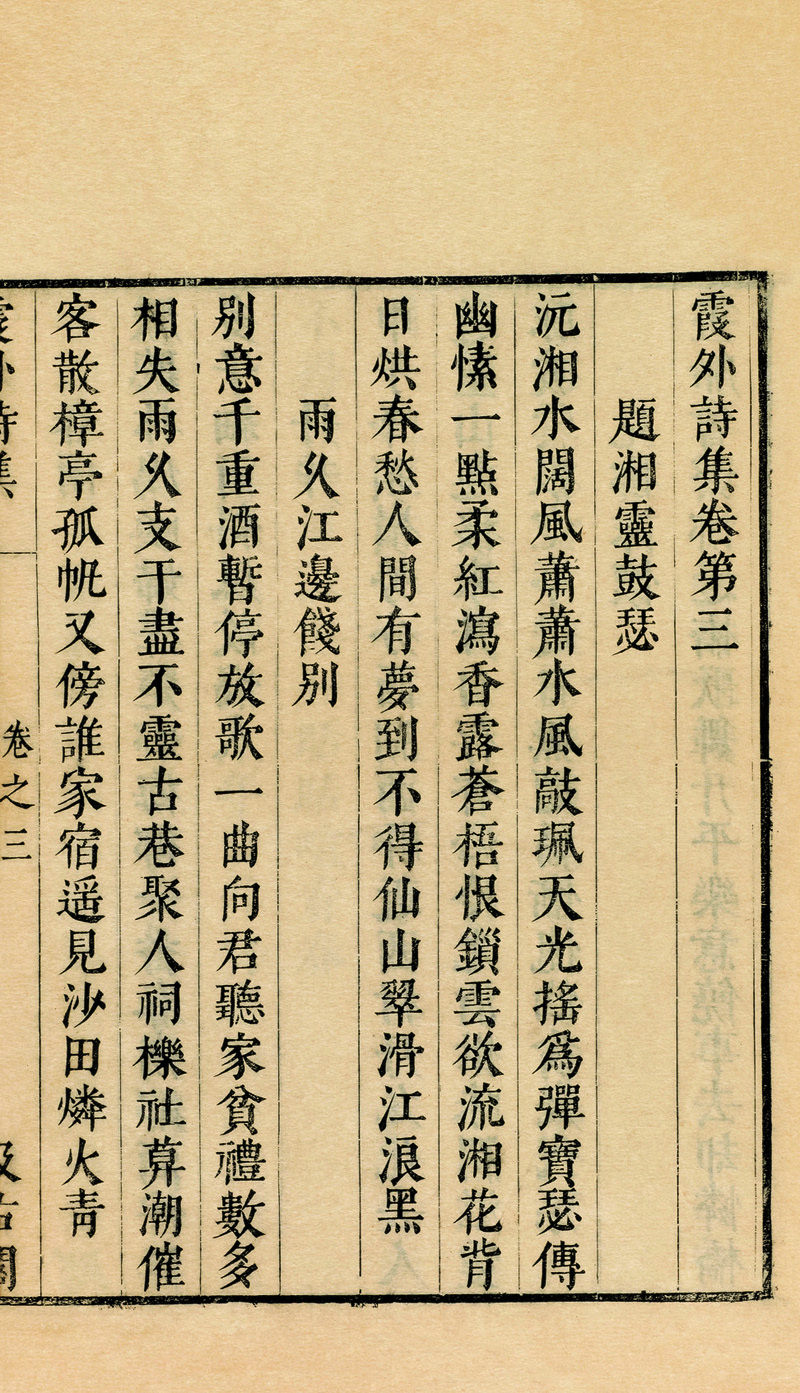 霞外詩集卷第三
題湘靈鼓瑟
沅湘水闊風蕭蕭水風敲珮天光搖爲彈寶瑟傳
幽愫一點柔紅瀉香露蒼梧恨鎖雲欲流湘花背
日烘春愁人間有夢到不得仙山翠滑江浪黑
雨久江邊餞別
別意千重酒暫停放歌一曲向君聽家貧禮數多
相失雨久支干盡不靈古巷聚人祠櫟社葬潮催
客散樟亭孤帆又傍誰家宿遥見沙田燐火青
霞外詩集
卷之三
汲古閣